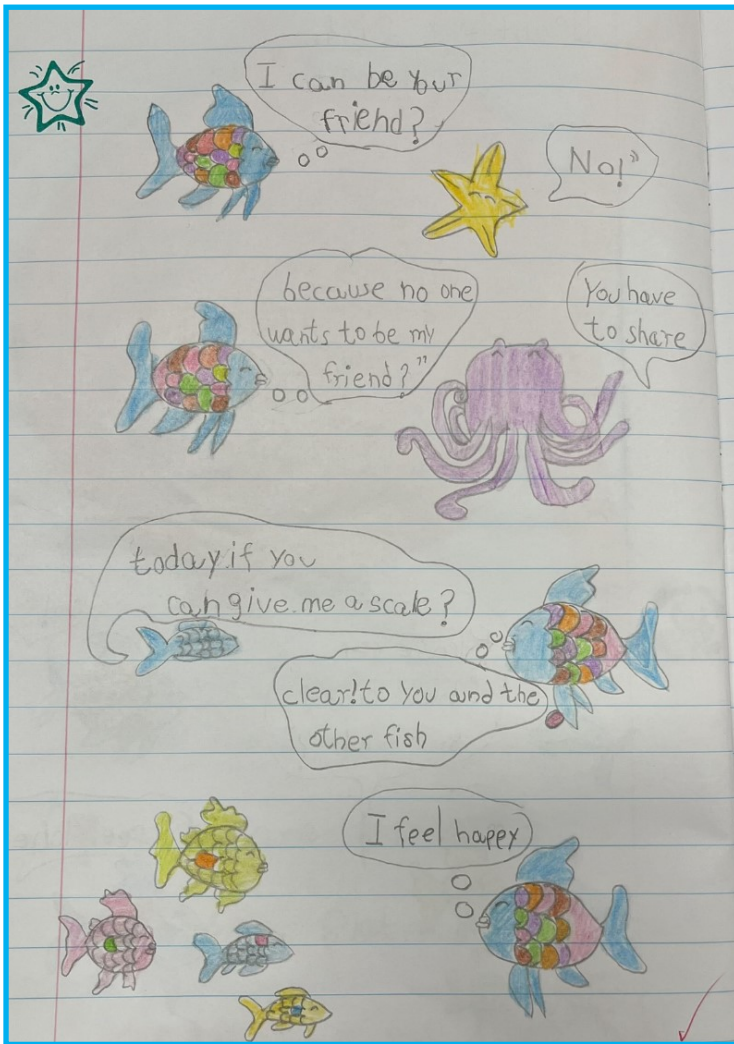 I can be your
friend?
No!”
because no one
wants to be my
friend?”
You have
to share
today.if you
can give me a scale?
clear!to you and the
other fish
I feel happy